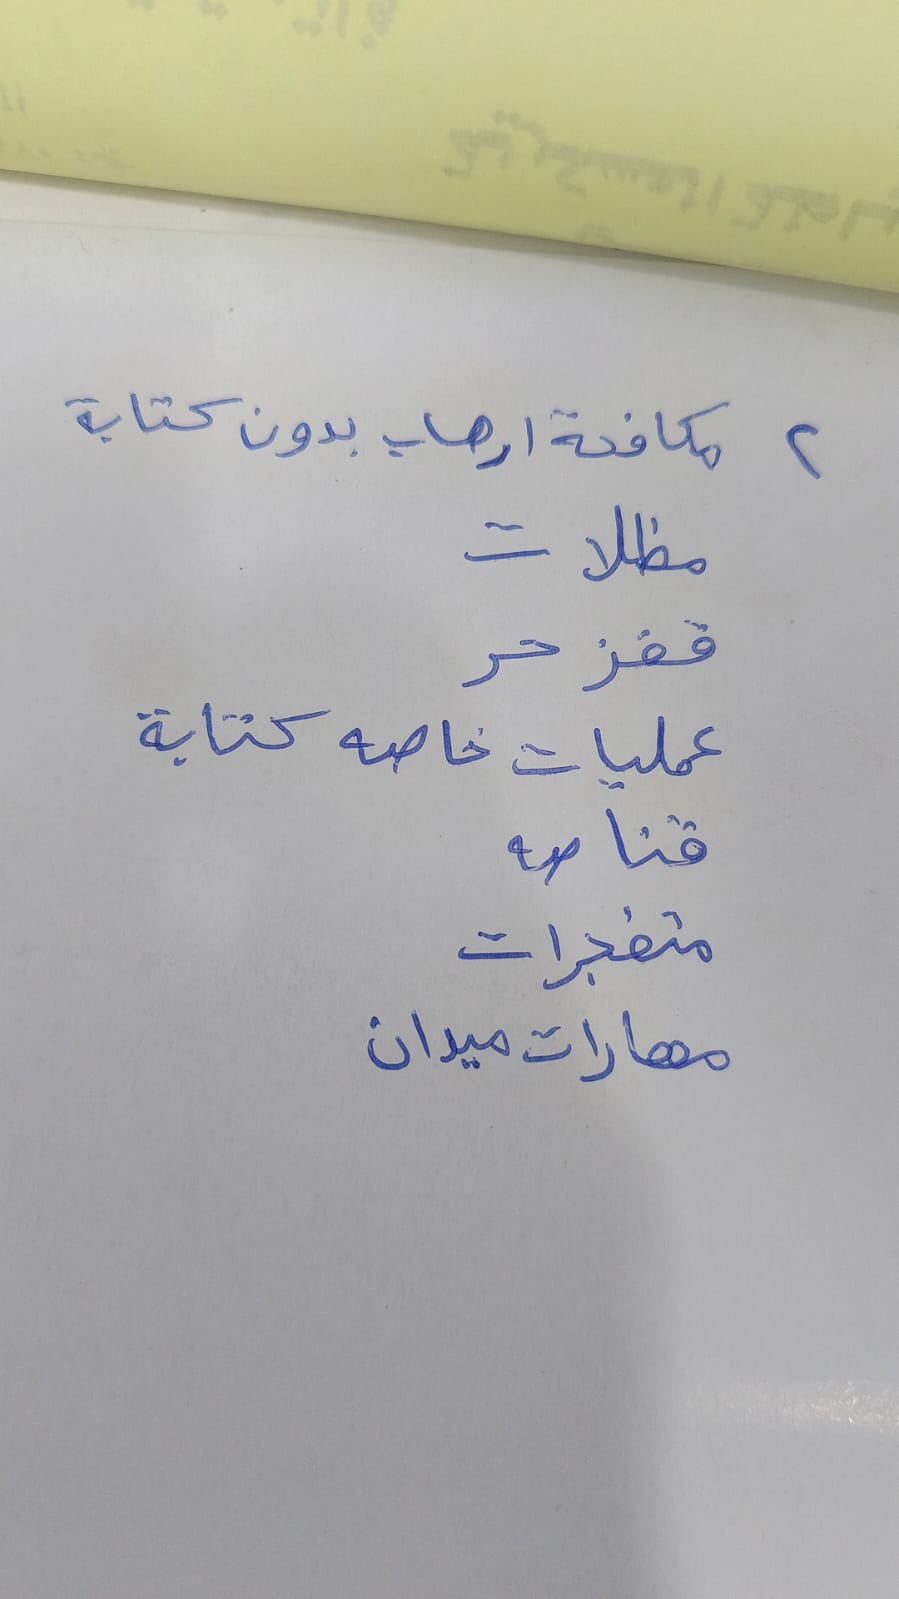 ٢ مكافحة ارهاب بدون كتابة
مظلات
قفز حر
عمليات خاصه كتابة
قناصه
متفجرات
مهارات ميدان